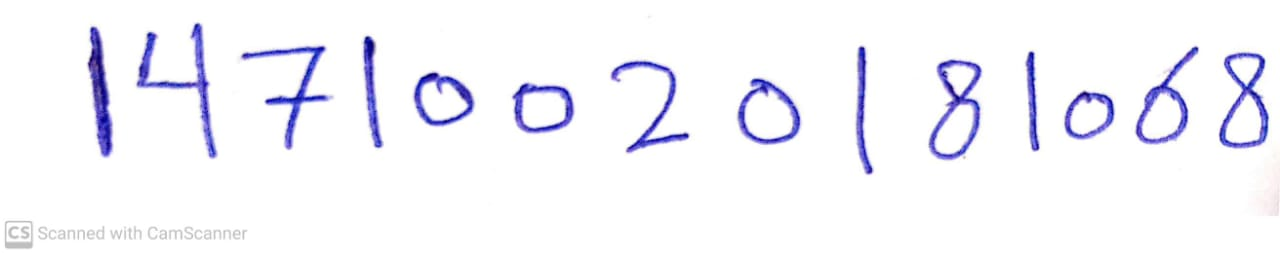 14710020181068
CS Scanned with CamScanner